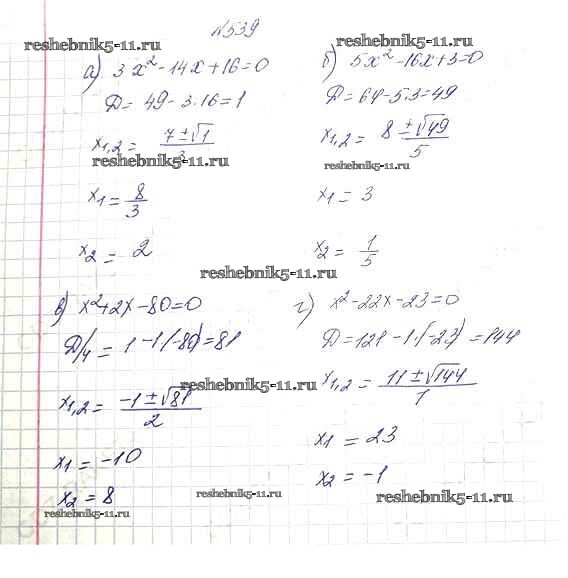 №539
reshebnik5-11.ru
reshebnik5-11.ru
а) 3x² - 14x + 16 = 0
Д = 49 - 3·16 = 1
x1,2 = (7 ± √1)/3
reshebnik5-11.ru
x1 = 8/3
x2 = 2
б) 5x² - 16x + 3 = 0
Д = 64 - 5·3 = 49
x1,2 = (8 ± √49)/5
reshebnik5-11.ru
x1 = 3
x2 = 1/5
reshebnik5-11.ru
в) x² + 2x - 80 = 0
Д/4 = 1 - 1·(-80) = 81
reshebnik5-11.ru
x1,2 = (-1 ± √81)/2
x1 = -10
x2 = 8
reshebnik5-11.ru
г) x² - 22x - 23 = 0
Д = 121 - 1·(-23) = 144
x1,2 = (11 ± √144)/1
x1 = 23
x2 = -1
reshebnik5-11.ru
reshebnik5-11.ru